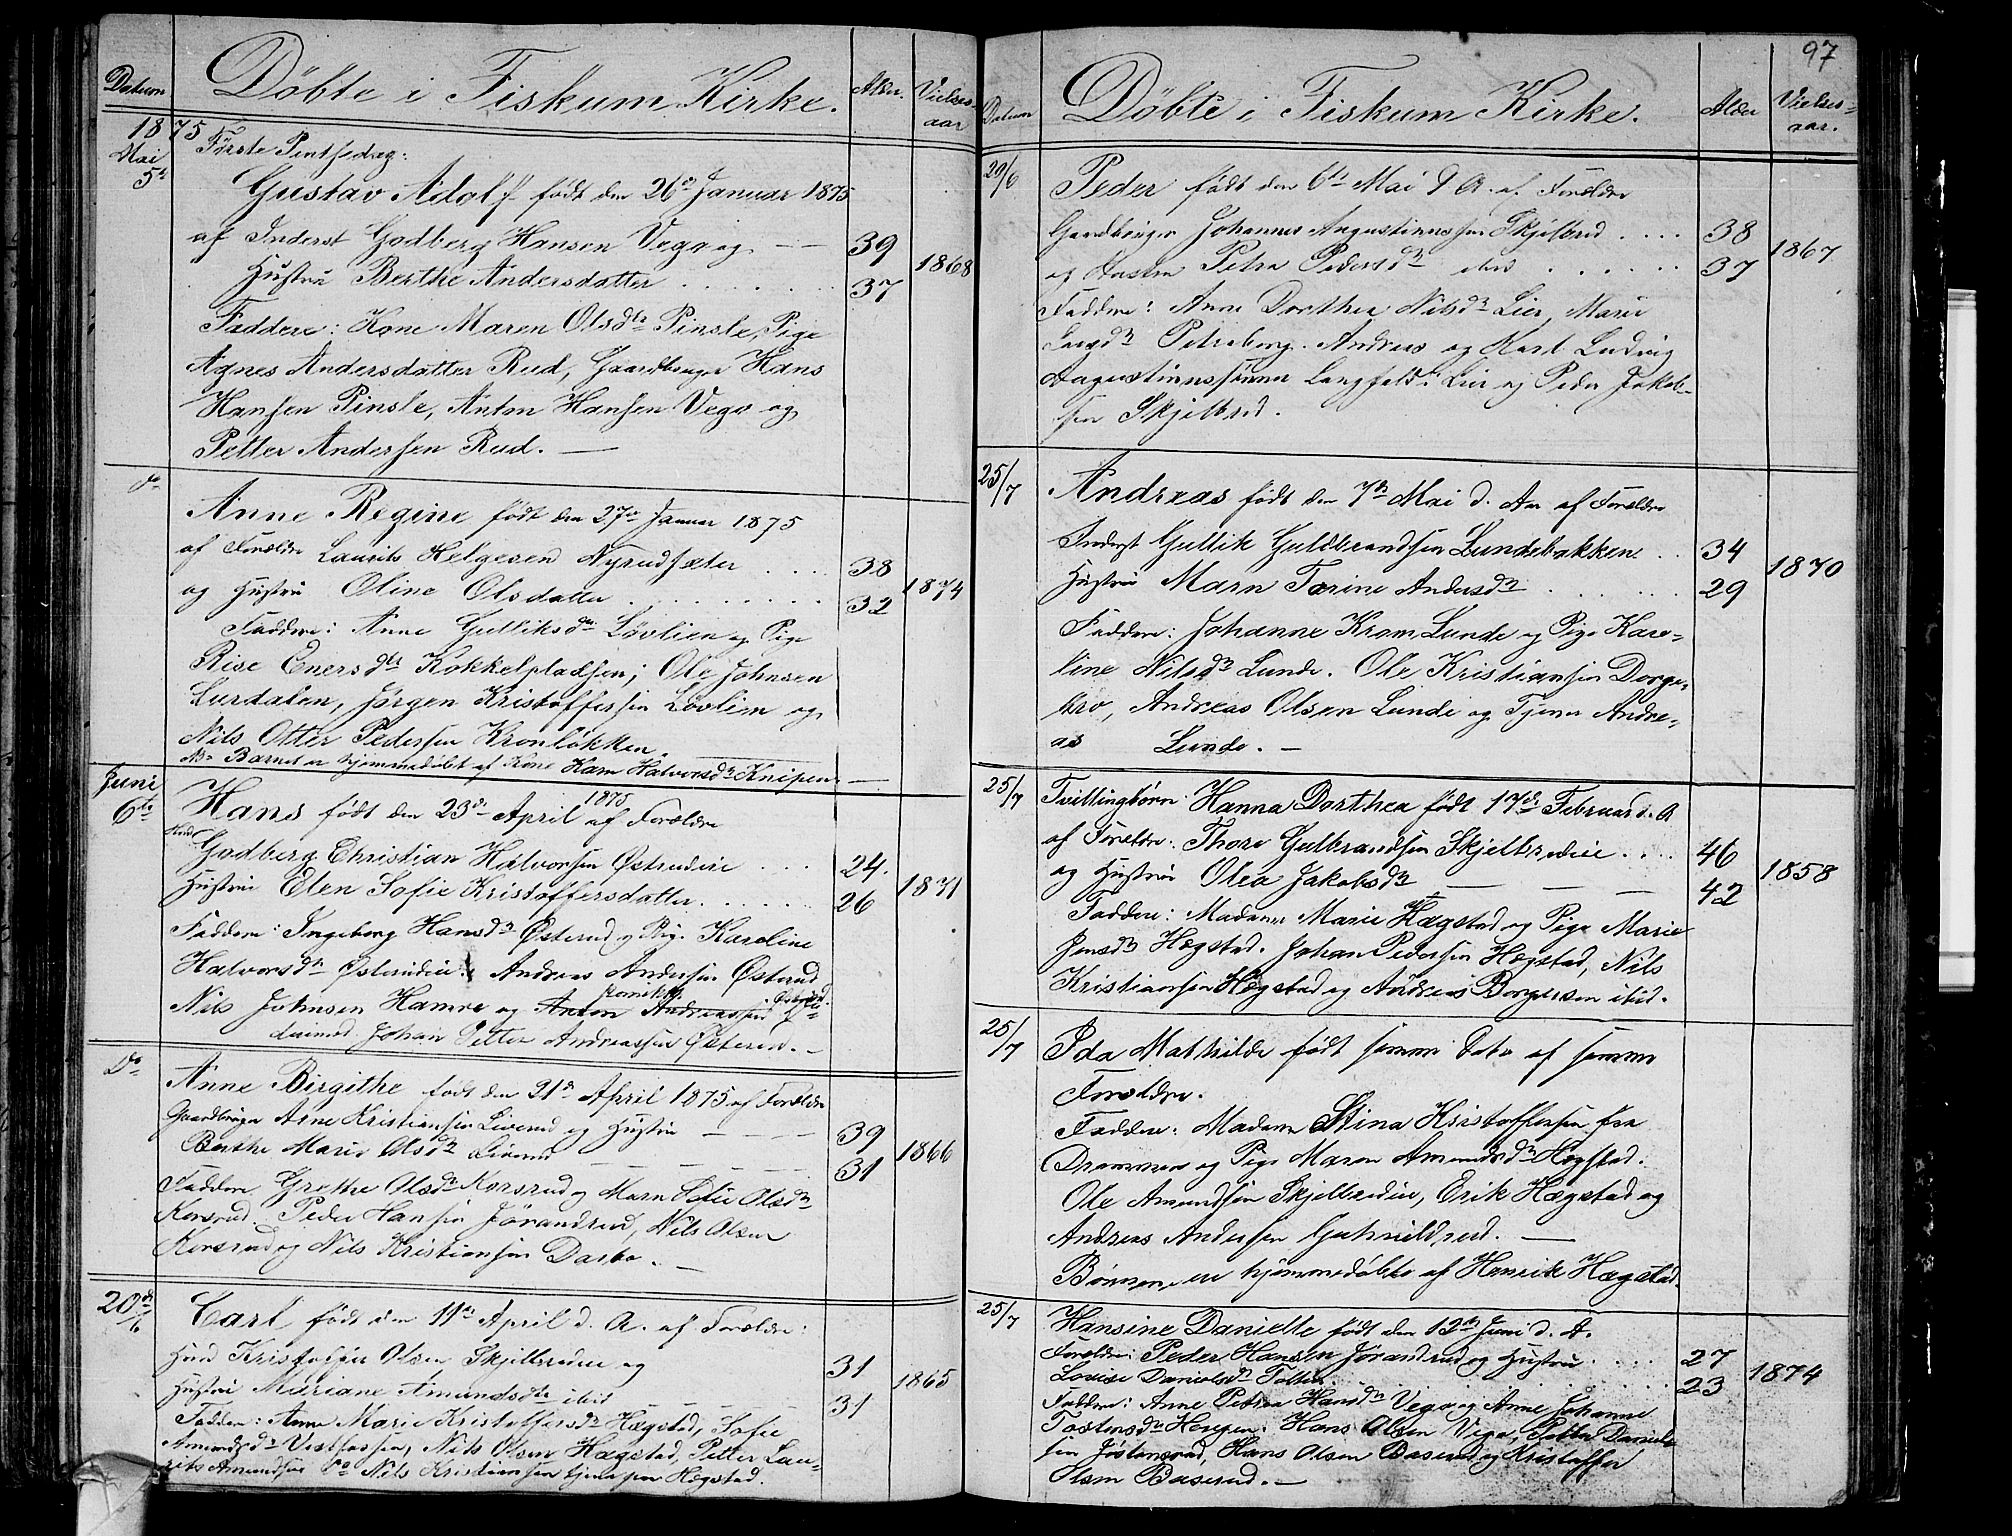 Datum
Döbte i Fiskum Kirke.
Alder.
Vielses-
aar
1875
Mai
5te
Förste Pintsedag:
Gustav Adolf födt den 26de Januar 1875
af Inderst Godberg Hansen Vego og
39
1868
Hustru Berthe Andersdatter
37
Faddere: Kone Maren Olsdtr Pinsle, Pige
Agnes Andersdatter Rud, Gaardbruger Hans
Hansen Pinsle, Anton Hansen Vego og
Petter Andersen Rud.
do
Anne Regine födt den 27de Januar 1875
af Forældre Laurits Helgesen Nyrudsæter
38
1874
og Hustru Oline Olsdatter
32
Faddere: Anne Gulliksdtr Lövlien og Pige
Rise Enersdtr Kokkelpladsen; Ole Johnsen
Lurdalen, Jörgen Kristoffersen Lövlien og
Nils Otter Pedersen Kronlökken.
NB. Barnet er hjemmedöbt af Kone Karn Halvorsdtr Knipen
Juni
6te
Hans födt den 23de April 1875 af Forældre
Godberg Christian Halvorsen Östrudeie
24.
1871
Hustru Elen Sofie Kristoffersdatter
26
Faddere: Ingeborg Hansdtr Österud og Pig. Karoline
Halvorsdtr Österudeie. Andreas Andersen Österud
Nils Johnsen Hamre og Anton Andreassen
Johan Petter Andreassen Österud.
Do
Anne Birgithe födt den 21de April 1875 af Forældre
Gaardbruger Arne Kristiansen Liverud og Hustru
39
1866
Berthe Marie Olsdtr Liverud
31
Faddere Grethe Olsdtr Korsrud og Marn Sofie Olsdtr
Korsrud. Peder Hansen Jörandrud, Nils Olsen
Korsrud og Nils Kristiansen Darbo.
20de/6
Carl födt den 11te April d. A. af Forældre:
Husd Kristoffer Olsen Skjelbredeie og
31
1865
Hustru Mariane Amundsdtr ibid
31
Faddere: Anne Marie Kristoffersdtr Hægstad, Sofie
Amundsdtr Vestfossen, Nils Olsen Hægstad, Petter Lau-
rits Amundsen og Nils Kristiansen tjener paa Hægstad.
97
Datum
Döbte i Fiskum Kirke.
Alder
Vielses-
aar.
20/6
Peder födt den 6te Mai d A. af Forældre
Gaardbruger Johannes Augustinussen Skjelbred
38
1867
og Hustru Petra Pedersdtr ibid
37
Faddere: Anne Dorthea Nilsdtr Lier, Marie
Larsdtr Petersborg. Andreas og Karl Ludvig
Augustinussönner Langfeld i Lier og Peder Jakob-
sen Skjelbred.
25/7
Andreas födt den 7de Mai d. Aar af Forældre
Inderst Gullik Guldbrandsen Lundebakken
34
1870
Hustru Marn Torine Andersdtr
29
Faddere: Johanne Krom Lunde og Pige Karo-
line Nilsdtr Lunde. Ole Kristiansen Dorge-
kro, Andreas Olsen Lunde og Tjener Andre-
as Lunde.
25/7
Tvillingbörn: Hanna Dorthea födt 17de Februar d. A
af Forældre: Thore Gulbrandsen Skjelbredeie
46
1858
og Hustru Olea Jakobsdtr
42
Faddere: Madame Marie Hægstad og Pige Marie
Jensdtr Hægstad. Johan Pedersen Hægstad, Nils
Kristiansen Hægstad og Andreas Borgersen ibid.
25/7
Ida Mathilde födt samme Dato af samme
Forældre.
Faddere: Madame Stina Kristoffersen fra
Drammen og Pige Maren Amundsdtr Hægstad.
Ole Amundsen Skjelbredeie, Erik Hægstad og
Andreas Andersen Gunhildrud.
Börnene ere hjemmedöbte af Henrik Hægstad
25/7
Hansine Danielle födt den 12te Juni d. A.
Forældre: Peder Hansen Jörandrud og Hustru
27
1874
Lovise Danielsdtr
23
Faddere: Anne Petrea Hansdtr Vego og Anne Johanne
Tostensdtr Horgen. Hans Olsen Vego, Petter Daniel-
sen Jöstensrud, Hans Olsen Baserud og Kristoffer
Olsen Baserud.